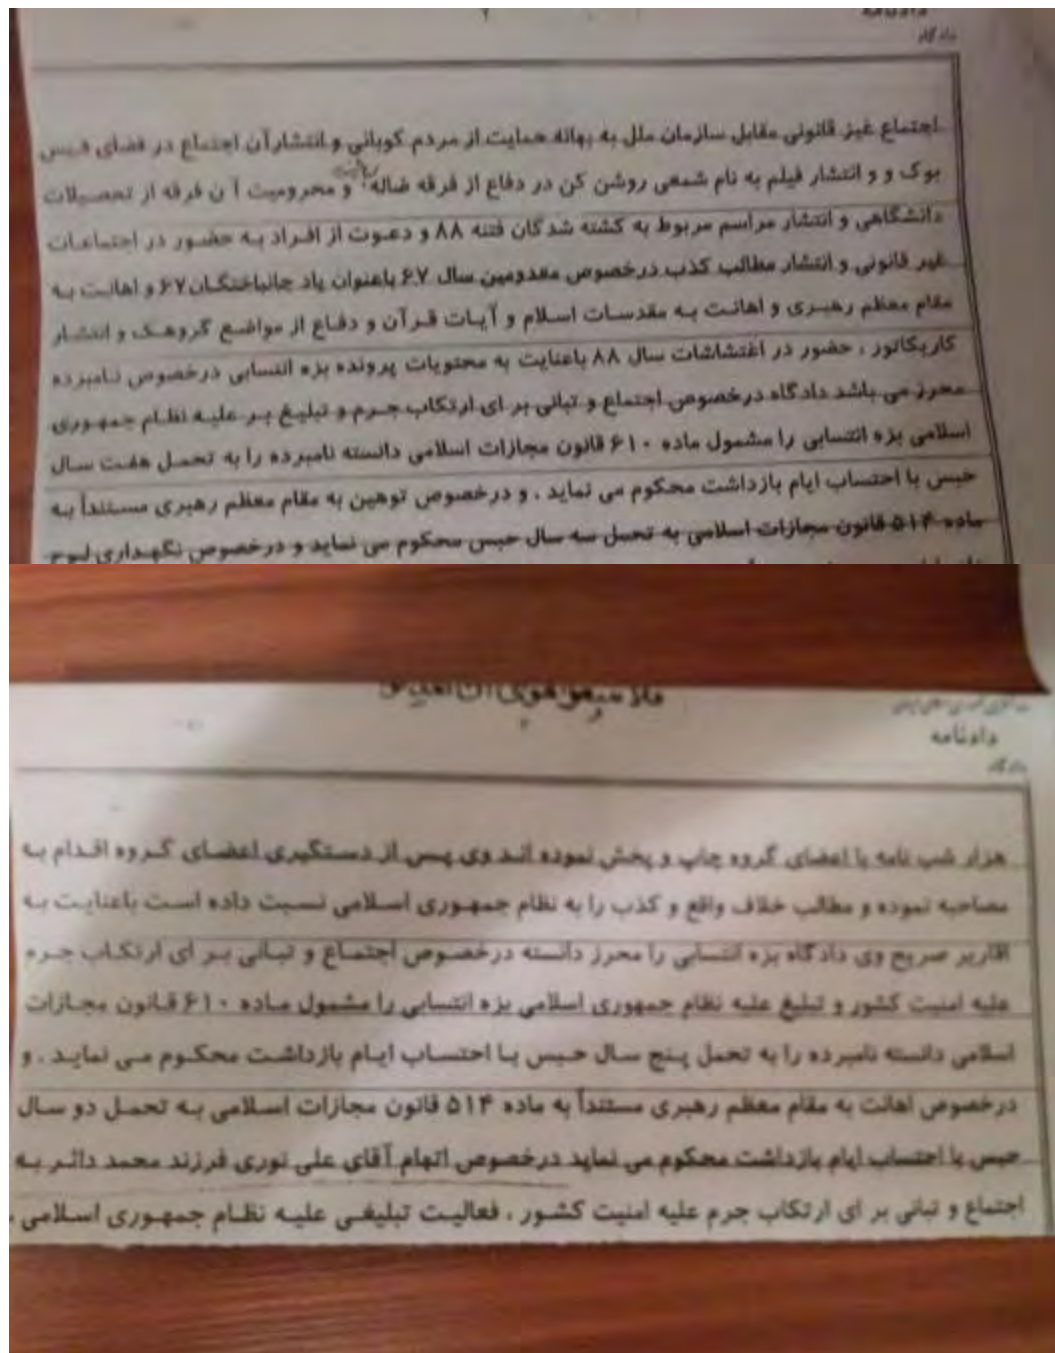 دادنامه
دادگاه
اجتماع غیر قانونی مقابل سازمان ملل به بهانه حمایت از مردم کوبانی و انتشار آن اجتماع در فضای فیس
بوک و و انتشار فیلم به نام شمعی روشن کن در دفاع از فرقه ضاله و محرومیت آ ن فرقه از تحصیلات
دانشگاهی و انتشار مراسم مربوط به کشته شدگان فتنه ۸۸ و دعوت از افراد به حضور در اجتماعات
غیر قانونی و انتشار مطالب کذب درخصوص معدومین سال ۶۷ باعنوان یاد جانباختگان ۶۷ و اهانت به
مقام معظم رهبری و اهانت به مقدسات اسلام و آیات قرآن و دفاع از مواضع گروهک و انتشار
کاریکاتور ، حضور در اغتشاشات سال ۸۸ باعنایت به محتویات پرونده بزه انتسابی درخصوص نامبرده
محرز می باشد دادگاه درخصوص اجتماع و تبانی بر ای ارتکاب جرم و تبلیغ بر علیه نظام جمهوری
اسلامی بزه انتسابی را مشمول ماده ۶۱۰ قانون مجازات اسلامی دانسته نامبرده را به تحمل هفت سال
حبس با احتساب ایام بازداشت محکوم می نماید . و درخصوص توهین به مقام معظم رهبری مستنداً به
ماده ۵۱۴ قانون مجازات اسلامی به تحمل سه سال حبس محکوم می نماید و درخصوص نگهداری لوح
دادنامه
دادگاه
هزار شب نامه با اعضای گروه چاپ و پخش نموده اند وی پس از دستگیری اعضای گروه اقدام به
مصاحبه نموده و مطالب خلاف واقع و کذب را به نظام جمهوری اسلامی نسبت داده است باعنایت به
اقاریر صریح وی دادگاه بزه انتسابی را محرز دانسته درخصوص اجتماع و تبانی بر ای ارتکاب جرم
علیه امنیت کشور و تبلیغ علیه نظام جمهوری اسلامی بزه انتسابی را مشمول ماده ۶۱۰ قانون مجازات
اسلامی دانسته نامبرده را به تحمل پنج سال حبس با احتساب ایام بازداشت محکوم می نماید . و
درخصوص اهانت به مقام معظم رهبری مستنداً به ماده ۵۱۴ قانون مجازات اسلامی به تحمل دو سال
حبس با احتساب ایام بازداشت محکوم می نماید درخصوص اتهام آقای علی نوری فرزند محمد دائر به
اجتماع و تبانی بر ای ارتکاب جرم علیه امنیت کشور ، فعالیت تبلیغی علیه نظام جمهوری اسلامی ،